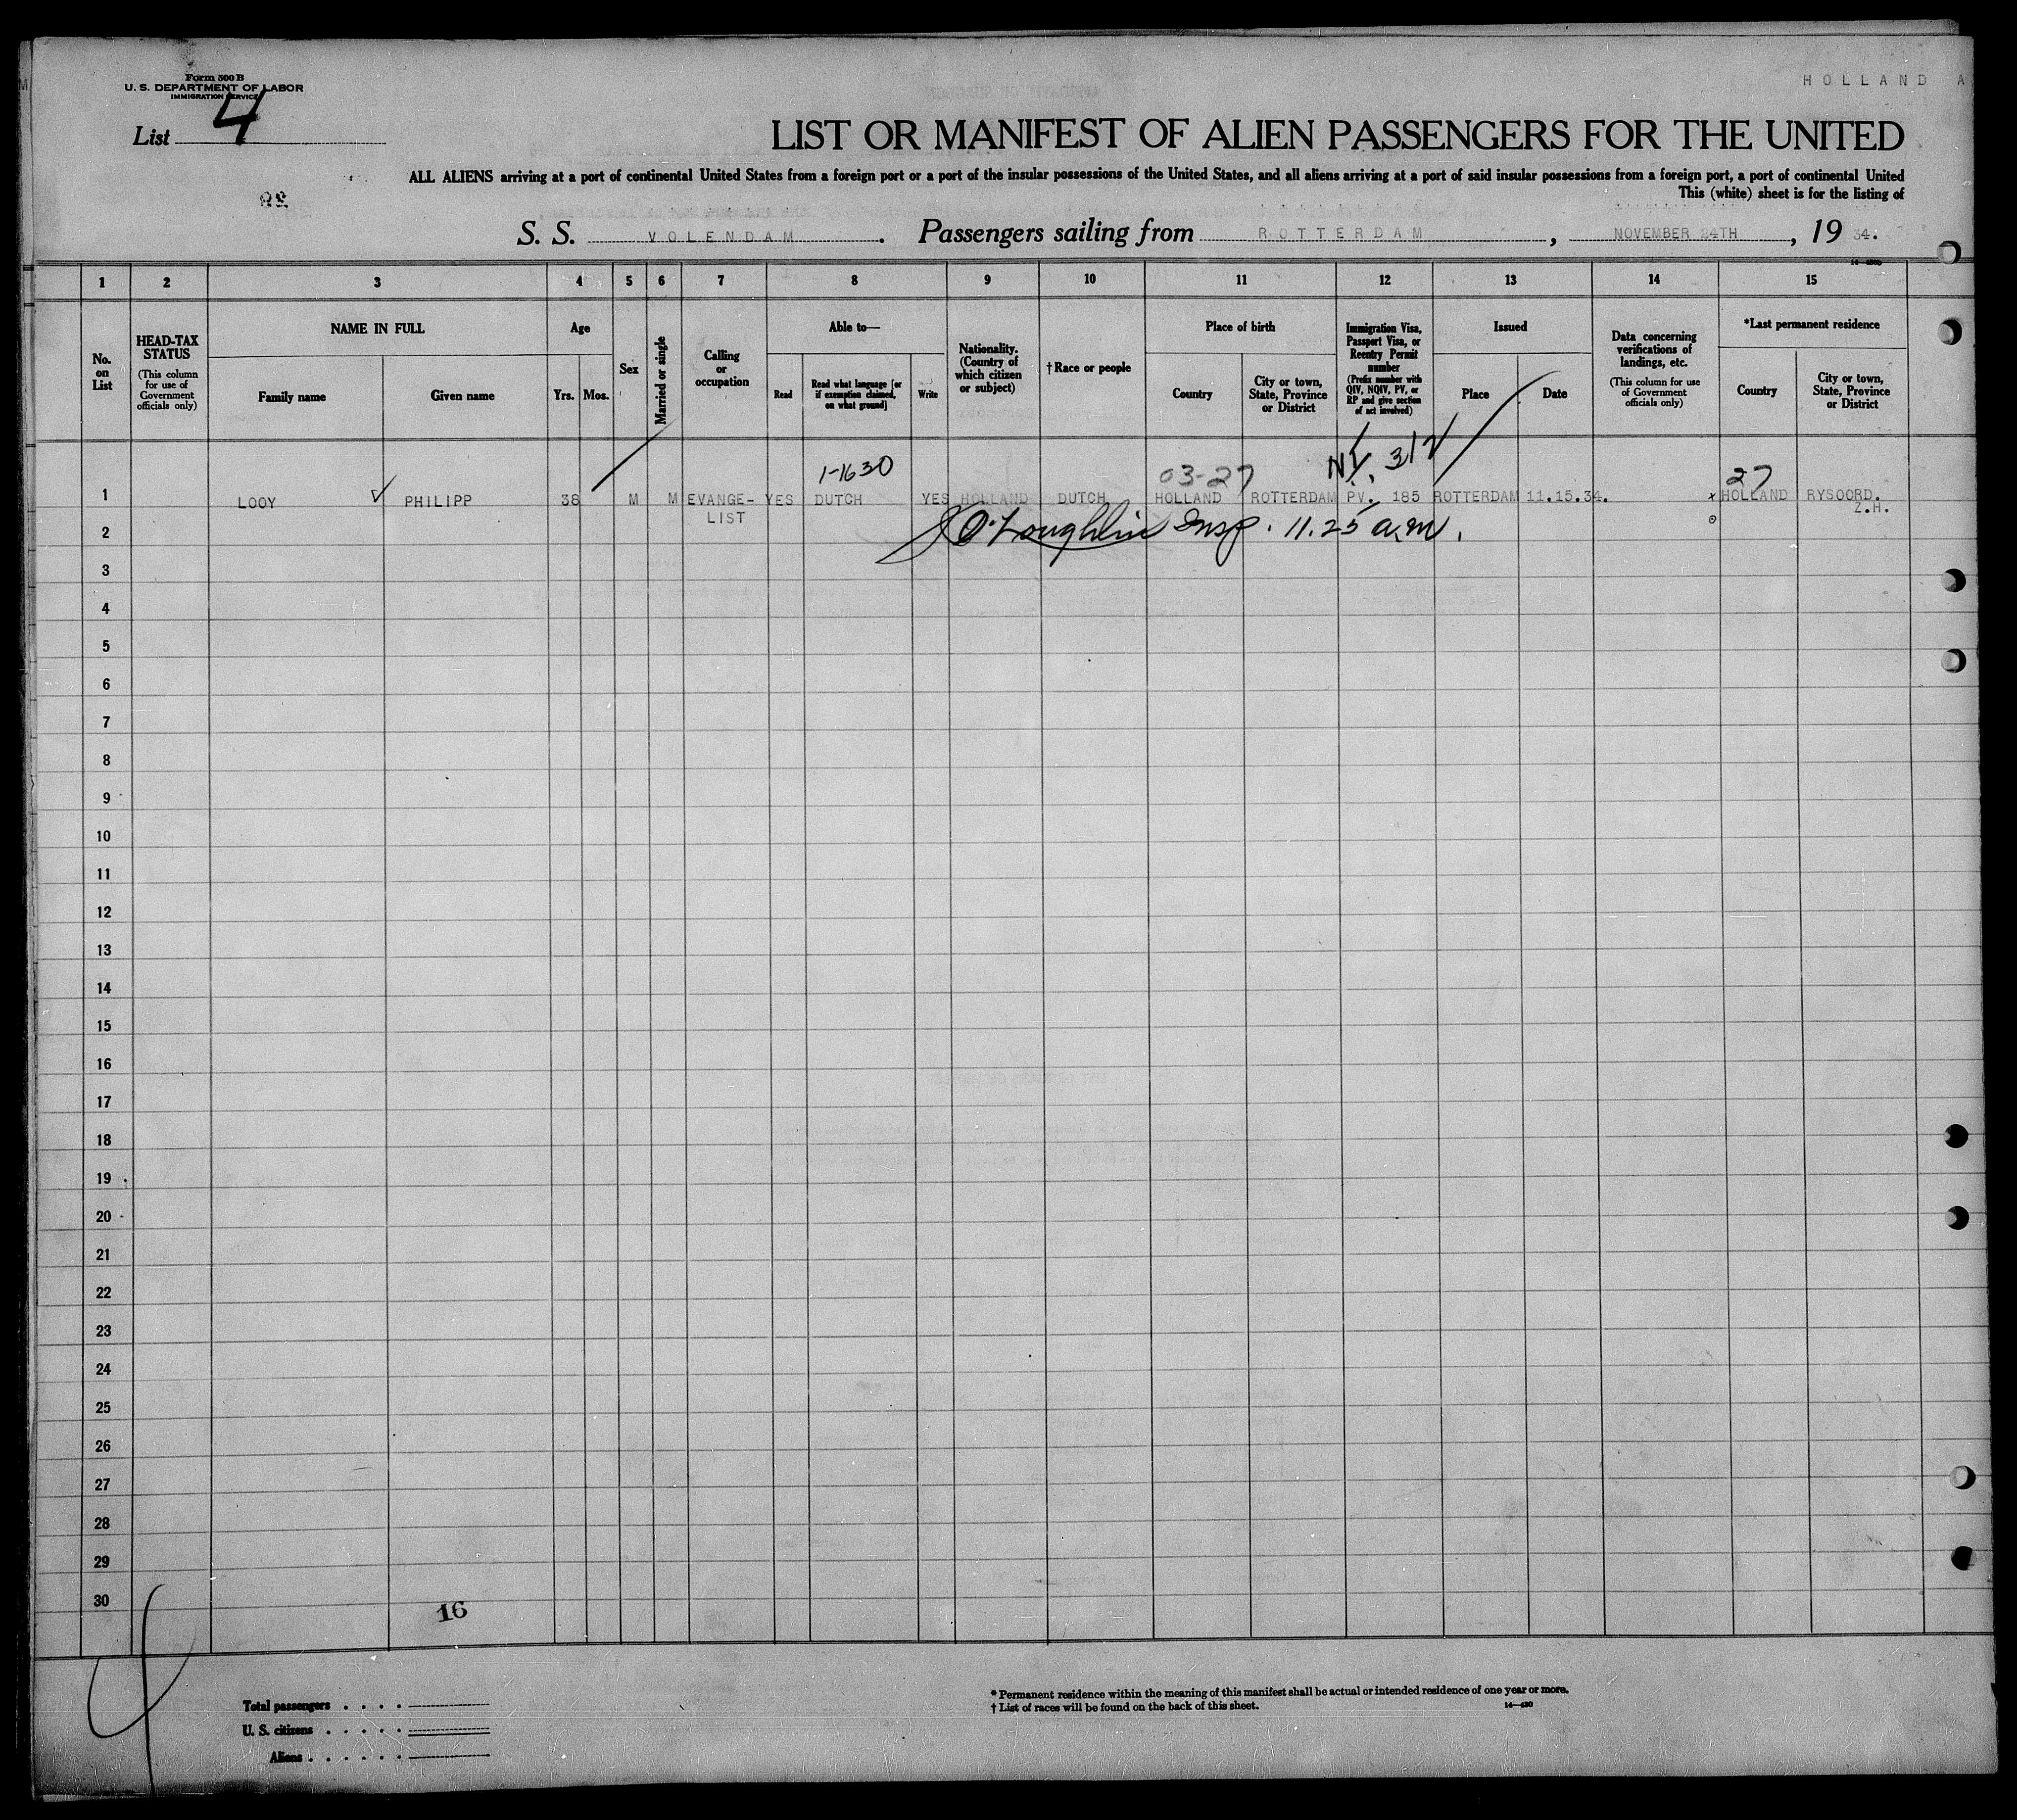 Form 500 B
U. S. DEPARTMENT OF LABOR
IMMIGRATION SERVICE
HOLLAND A
List 4
LIST OR MANIFEST OF ALIEN PASSENGERS FOR THE UNITED
ALL ALIENS arriving at a port of continental United States from a foreign port or a port of the insular possessions of the United States, and all aliens arriving at a port of said insular possessions from a foreign port, a port of continental United
This (white) sheet is for the listing of
S. S. VOLENDAM. Passengers sailing from ROTTERDAM, NOVEMBER 24TH, 19 34.
1 2 3 4 5 6 7 8 9 10 11 12 13 14 15
No. on List
HEAD-TAX STATUS
(This column for use of Government officials only)
NAME IN FULL
Family name
Given name
Age
Yrs. Mos.
Sex
Married or single
Calling or occupation
Able to—
Read
Read what language [or if exemption claimed, on what ground]
Write
Nationality. (Country of which citizen or subject)
† Race or people
Place of birth
Country
City or town, State, Province or District
Immigration Visa, Passport Visa, or Reentry Permit number
(Prefix number with QIV, NQIV, PV, or RP and give section of act involved)
Issued
Place
Date
Data concerning verifications of landings, etc.
(This column for use of Government officials only)
*Last permanent residence
Country
City or town, State, Province or District
1-1630 03-27 312 27
1 LOOY PHILIPP 38 M M EVANGE- YES DUTCH YES HOLLAND DUTCH HOLLAND ROTTERDAM PV. 185 ROTTERDAM 11.15.34. x HOLLAND RYSOORD.
LIST Z.H.
2 O'Loughlin Insp. 11.25 a.m.
3
4
5
6
7
8
9
10
11
12
13
14
15
16
17
18
19
20
21
22
23
24
25
26
27
28
29
30
16
Total passengers . . . .
U. S. citizens . . . . .
Aliens . . . . . .
* Permanent residence within the meaning of this manifest shall be actual or intended residence of one year or more.
† List of races will be found on the back of this sheet.
14—430